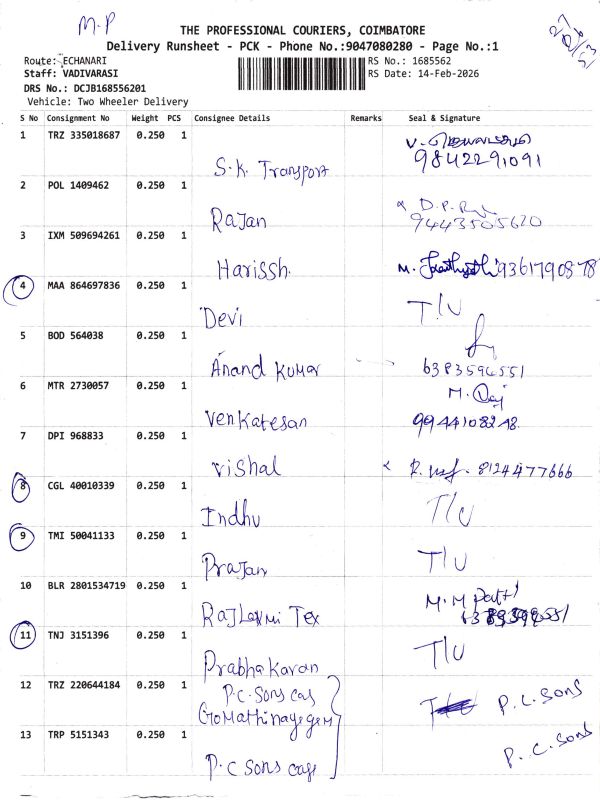 M-P
THE PROFESSIONAL COURIERS, COIMBATORE
Delivery Runsheet - PCK - Phone No.:9047080280 - Page No.:1
Route: ECHANARI
Staff: VADIVARASI
DRS No.: DCJB168556201
Vehicle: Two Wheeler Delivery
RS No.: 1685562
RS Date: 14-Feb-2026
S No Consignment No Weight PCS Consignee Details Remarks Seal & Signature
1 TRZ 335018687 0.250 1 S.K. Transport 9842291091
2 POL 1409462 0.250 1 Rajan 9443505620
3 IXM 509694261 0.250 1 Harissh. 9361790878
4 MAA 864697836 0.250 1 Devi T/U
5 BOD 564038 0.250 1 Anand Kumar 6383596551
6 MTR 2730057 0.250 1 Venkatesan M. 9944108248
7 DPI 968833 0.250 1 Vishal 8124477666
8 CGL 40010339 0.250 1 Indhu T/U
9 TMI 50041133 0.250 1 Prajan T/U
10 BLR 2801534719 0.250 1 RajLaxmi Tex M.M
11 TNJ 3151396 0.250 1 Prabhakaran T/U
12 TRZ 220644184 0.250 1 P.C. Sons cas Gomathinayagam P.C. Sons
13 TRP 5151343 0.250 1 P.C Sons cas P.C. Sons